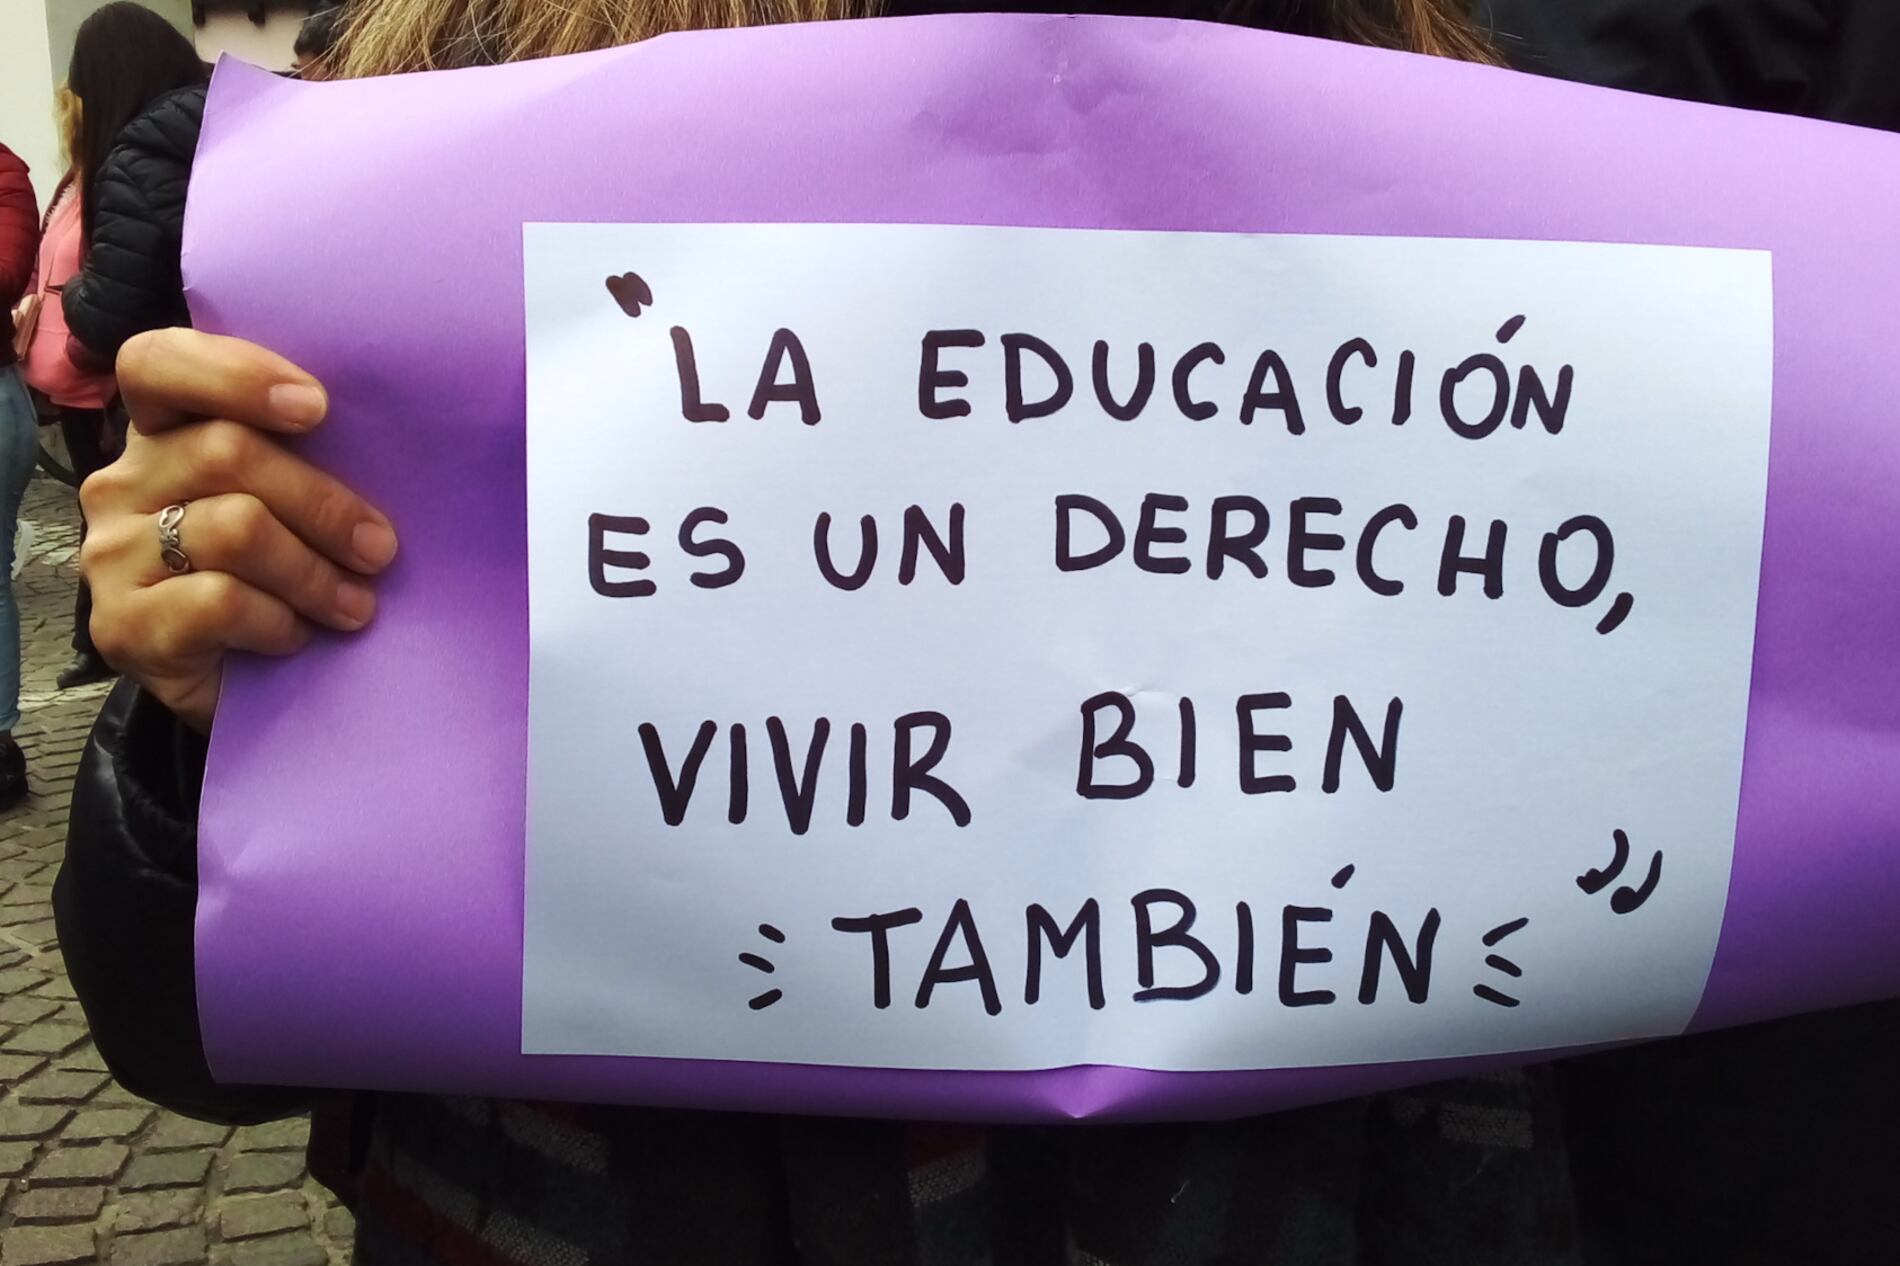 "LA EDUCACIÓN
ES UN DERECHO,
VIVIR BIEN
TAMBIÉN"